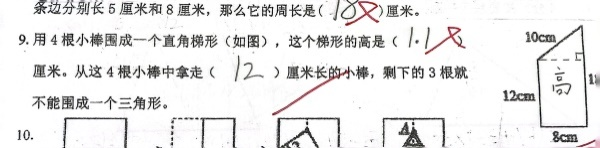 条边分别长5厘米和8厘米，那么它的周长是（ 18 ）厘米。
9. 用4根小棒围成一个直角梯形（如图），这个梯形的高是（ 1.1 ）
厘米。从这4根小棒中拿走（ 12 ）厘米长的小棒，剩下的3根就
不能围成一个三角形。
10cm
高
12cm
8cm
10.
A